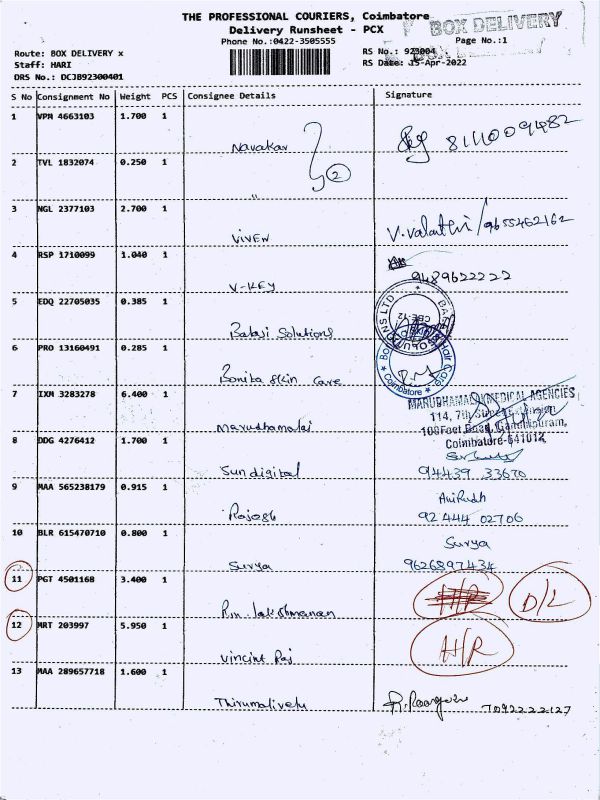 THE PROFESSIONAL COURIERS, Coimbatore
BOX DELIVERY
Delivery Runsheet - PCX
Phone No.:0422-3505555
Page No.:1
Route: BOX DELIVERY x
RS No.: 923004
Staff: HARI
RS Date: 15-Apr-2022
DRS No.: DCJB92300401
S No Consignment No Weight PCS Consignee Details Signature
1 VPM 4663103 1.700 1
Navakar
2 TVL 1832074 0.250 1
2
"
3 NGL 2377103 2.700 1
VIVEN V.Valathi/9655462162
4 RSP 1710099 1.040 1
V-KEY 9489622222
5 EDQ 22705035 0.385 1
Balaji Solutions
CBE-12
6 PRO 13160491 0.285 1
Bonita Skin Care
Hair Care
Coimbatore
7 IXM 3283278 6.400 1
MARUDHAMALAI MEDICAL AGENCIES
114, 7th Street Extension
100Feet Road, Gandhipuram,
Marudhamalai
Coimbatore-641012
8 DDG 4276412 1.700 1
Sundigital 94439 33670
9 MAA 565238179 0.915 1
Anirudh
Rajesh 92444 02706
10 BLR 615470710 0.800 1
Surya
Surya 9626897434
11 PGT 4501168 3.400 1
D/L
Rm. Lakshmanan
12 MRT 203997 5.950 1
H/R
Vincint Raj
13 MAA 289657718 1.600 1
Thirumalivelu 7092222127